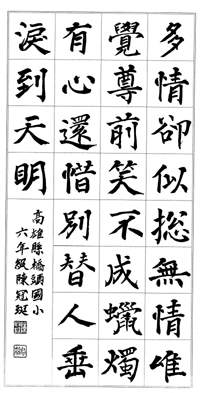 多情卻似總無情唯
覺尊前笑不成蠟燭
有心還惜別替人垂
淚到天明
高雄縣橋頭國小
六年級陳冠綖